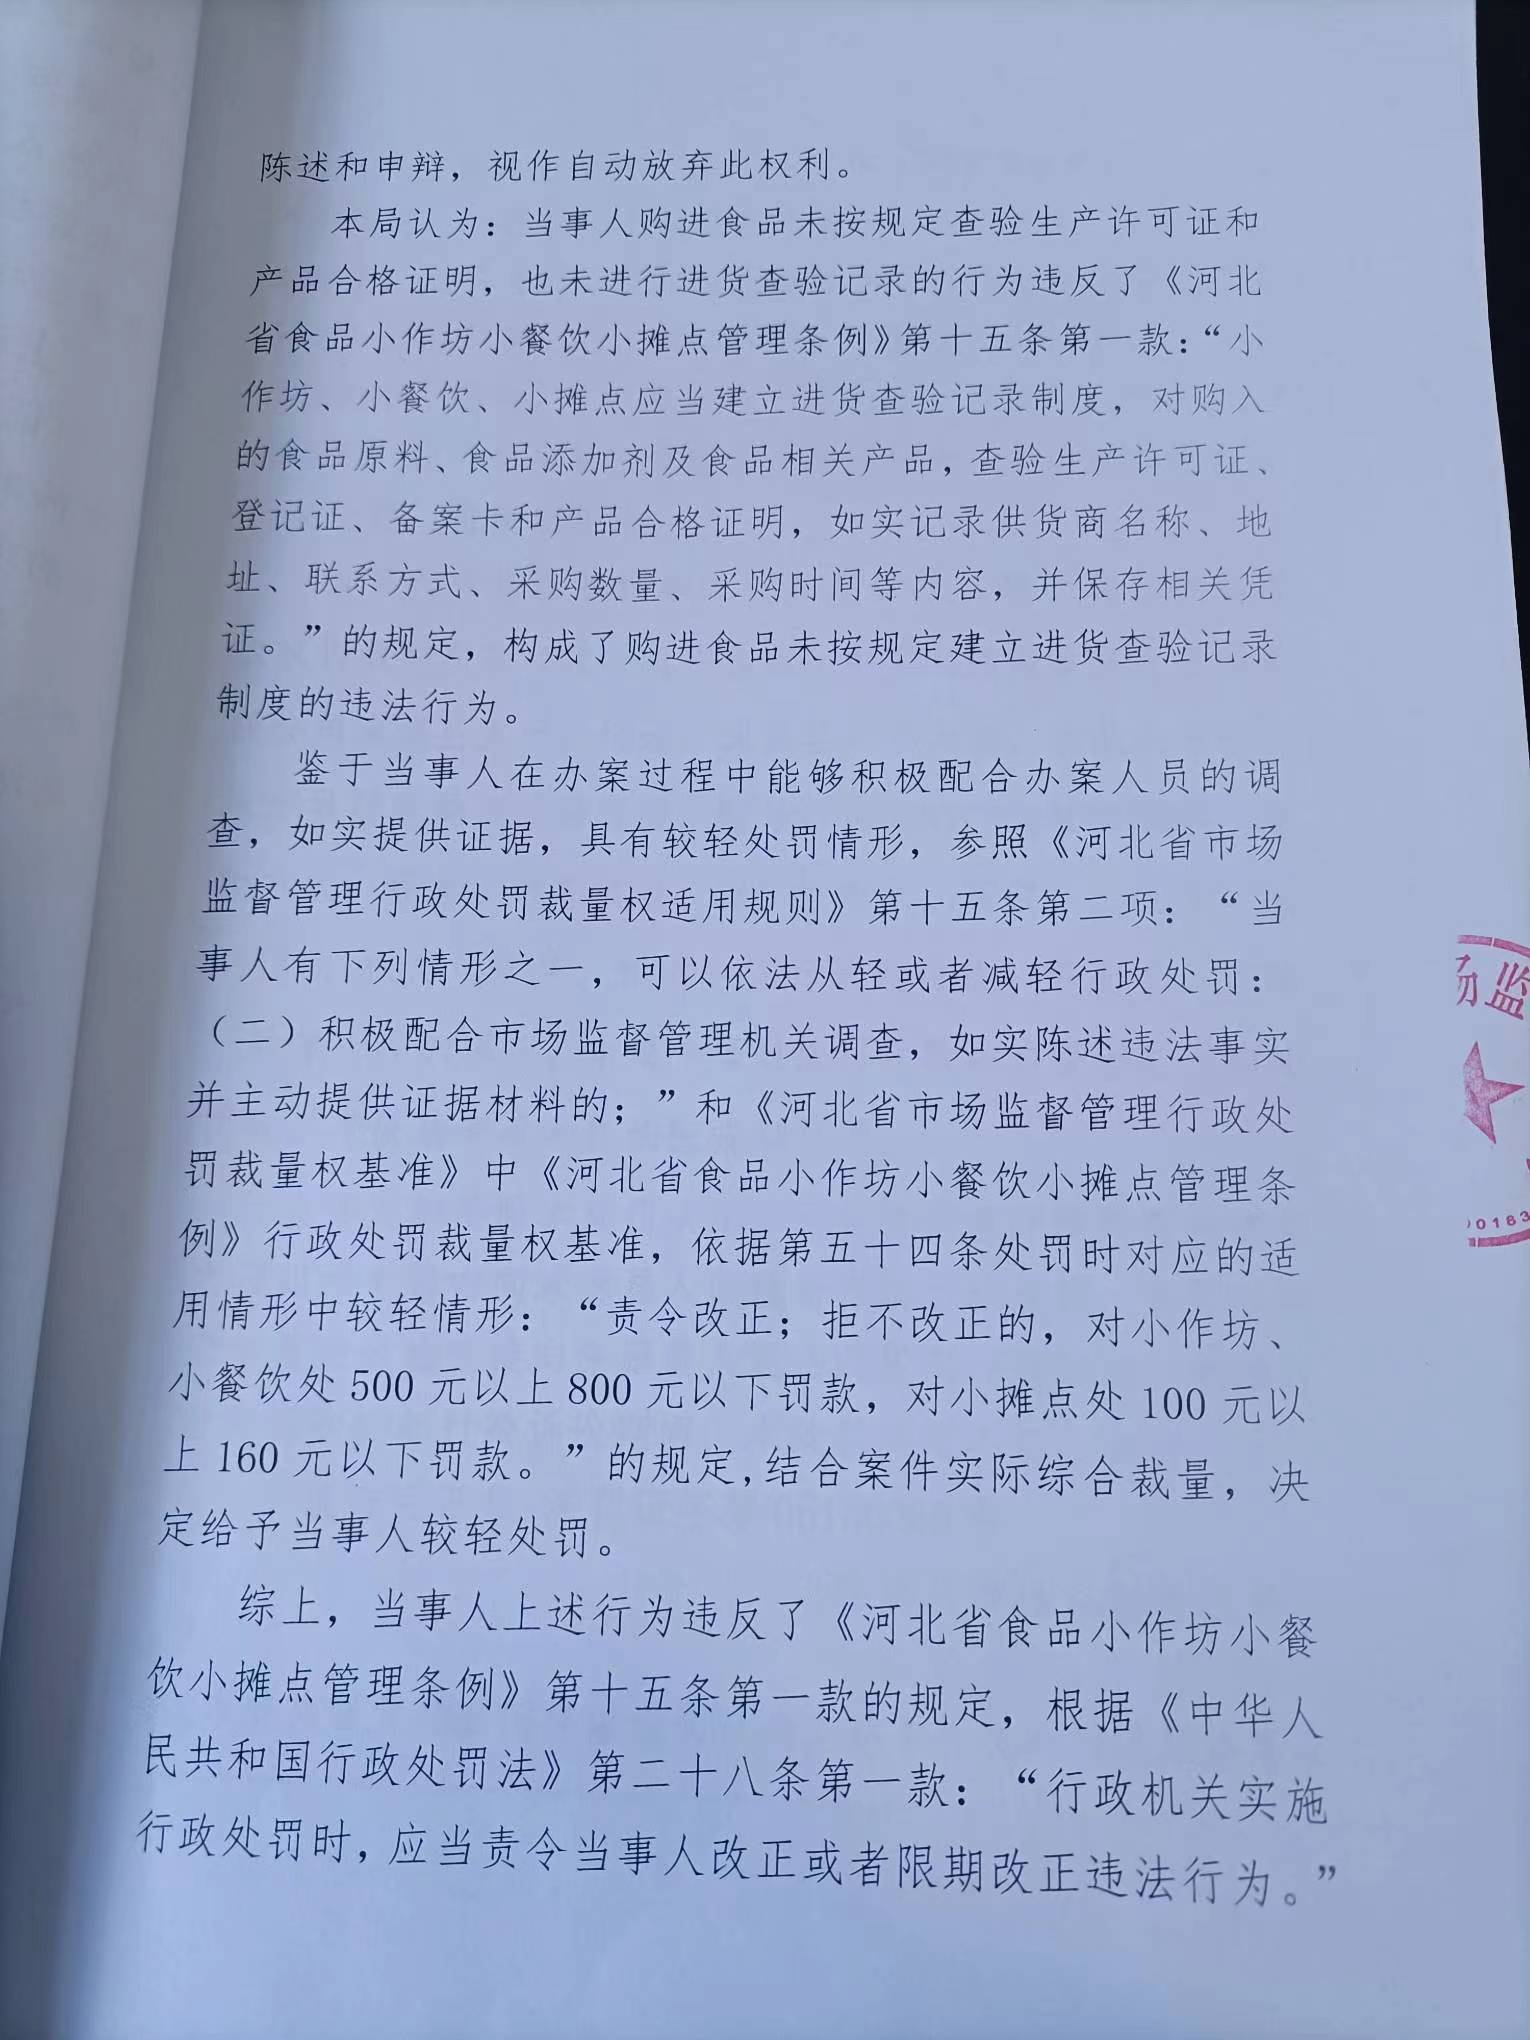 陈述和申辩，视作自动放弃此权利。
本局认为：当事人购进食品未按规定查验生产许可证和
产品合格证明，也未进行进货查验记录的行为违反了《河北
省食品小作坊小餐饮小摊点管理条例》第十五条第一款：“小
作坊、小餐饮、小摊点应当建立进货查验记录制度，对购入
的食品原料、食品添加剂及食品相关产品，查验生产许可证、
登记证、备案卡和产品合格证明，如实记录供货商名称、地
址、联系方式、采购数量、采购时间等内容，并保存相关凭
证。”的规定，构成了购进食品未按规定建立进货查验记录
制度的违法行为。
鉴于当事人在办案过程中能够积极配合办案人员的调
查，如实提供证据，具有较轻处罚情形，参照《河北省市场
监督管理行政处罚裁量权适用规则》第十五条第二项：“当
事人有下列情形之一，可以依法从轻或者减轻行政处罚：
（二）积极配合市场监督管理机关调查，如实陈述违法事实
并主动提供证据材料的；”和《河北省市场监督管理行政处
罚裁量权基准》中《河北省食品小作坊小餐饮小摊点管理条
例》行政处罚裁量权基准，依据第五十四条处罚时对应的适
用情形中较轻情形：“责令改正；拒不改正的，对小作坊、
小餐饮处 500 元以上 800 元以下罚款，对小摊点处 100 元以
上 160 元以下罚款。”的规定,结合案件实际综合裁量，决
定给予当事人较轻处罚。
综上，当事人上述行为违反了《河北省食品小作坊小餐
饮小摊点管理条例》第十五条第一款的规定，根据《中华人
民共和国行政处罚法》第二十八条第一款：“行政机关实施
行政处罚时，应当责令当事人改正或者限期改正违法行为。”
场监
00183